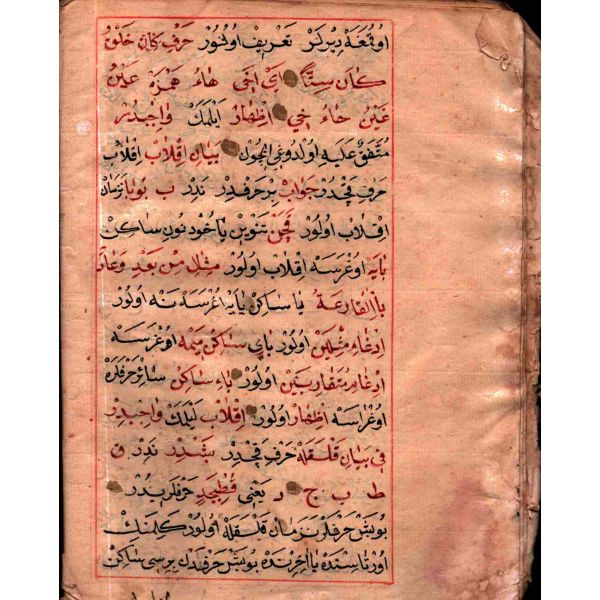 اوتمغه ديرلر تعريف اولنور حرف كان خلق
كان ستّا اى اخى هاء همزه عين
غين حاء خى اظهار ايلمك واجبدر
متّفق عليه اولدوغى ايچون بيان اقلاب اقلاب
حرف قچدر جواب بر حرفدر ندر ب بو با نزمان
اقلاب اولور قچن تنوين ياخود نون ساكن
بايه اوغرسه اقلاب اولور مثل من بعد وعاد
بالقارعة با ساكن بايه اوغرسه نه اولور
ادغام مثلين اولور باى ساكن ميمه اوغرسه
ادغام متقاربين اولور باء ساكن سائر حرفلره
اوغراسه اظهار اولور اقلاب ايلمك واجبدر
فى بيان قلقله حرف قچدر بشدر ندر ق
ط ب ج د يعنى قطبجد حرفلريدر
بو بش حرفلر نزمان قلقله اولور كلمنك
اورتاسنده يا اخرنده بو بش حرفدن برسى ساكن